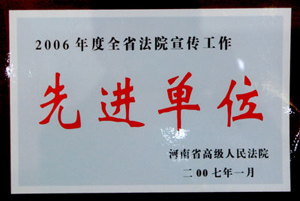 2006年度全省法院宣传工作
先进单位
河南省高级人民法院
二00七年一月